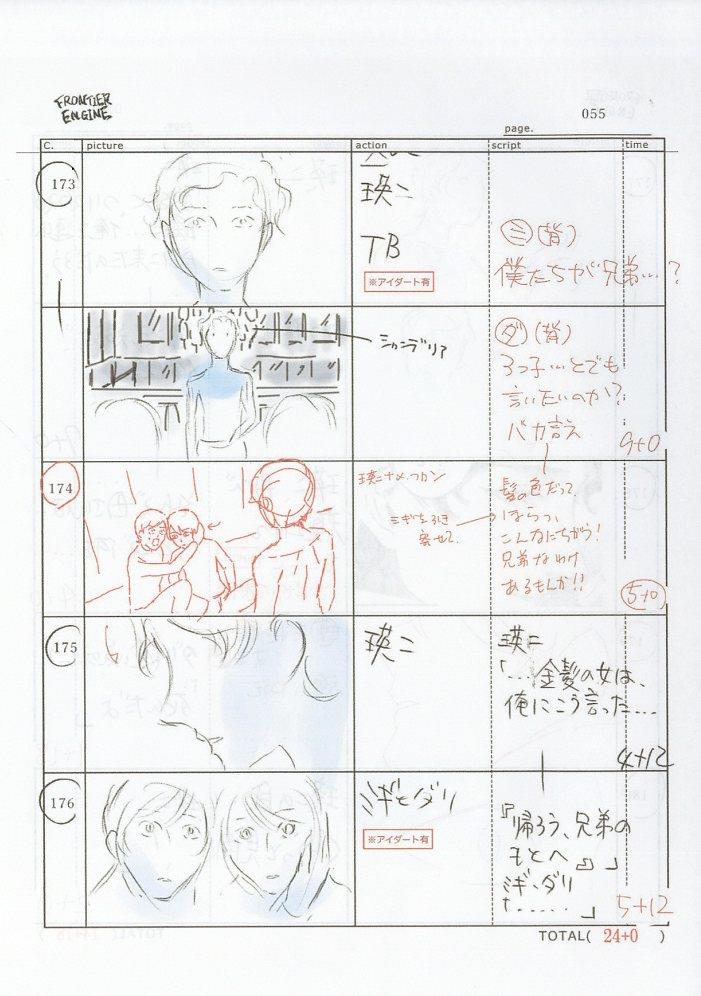 FRONTIER
ENGINE
055
page.
C.
picture
action
script
time
173
瑛二
TB
※アイダート有
ミ(背)
僕たちが兄弟…?
シャンデリア
ダ(背)
3つ子…とでも
言いたいのか?
バカ言え
9+0
174
瑛二ナメ・フカン
ミギを引き
寄せて
髪の色だって、
ほらっ、
こんなにちがう!
兄弟なわけ
あるもんか!!
5+0
175
瑛二
瑛二
「…金髪の女は、
俺にこう言った…
4+12
176
ミギとダリ
※アイダート有
『帰ろう、兄弟の
もとへ』」
ミギ・ダリ
「……」
5+12
TOTAL( 24+0 )